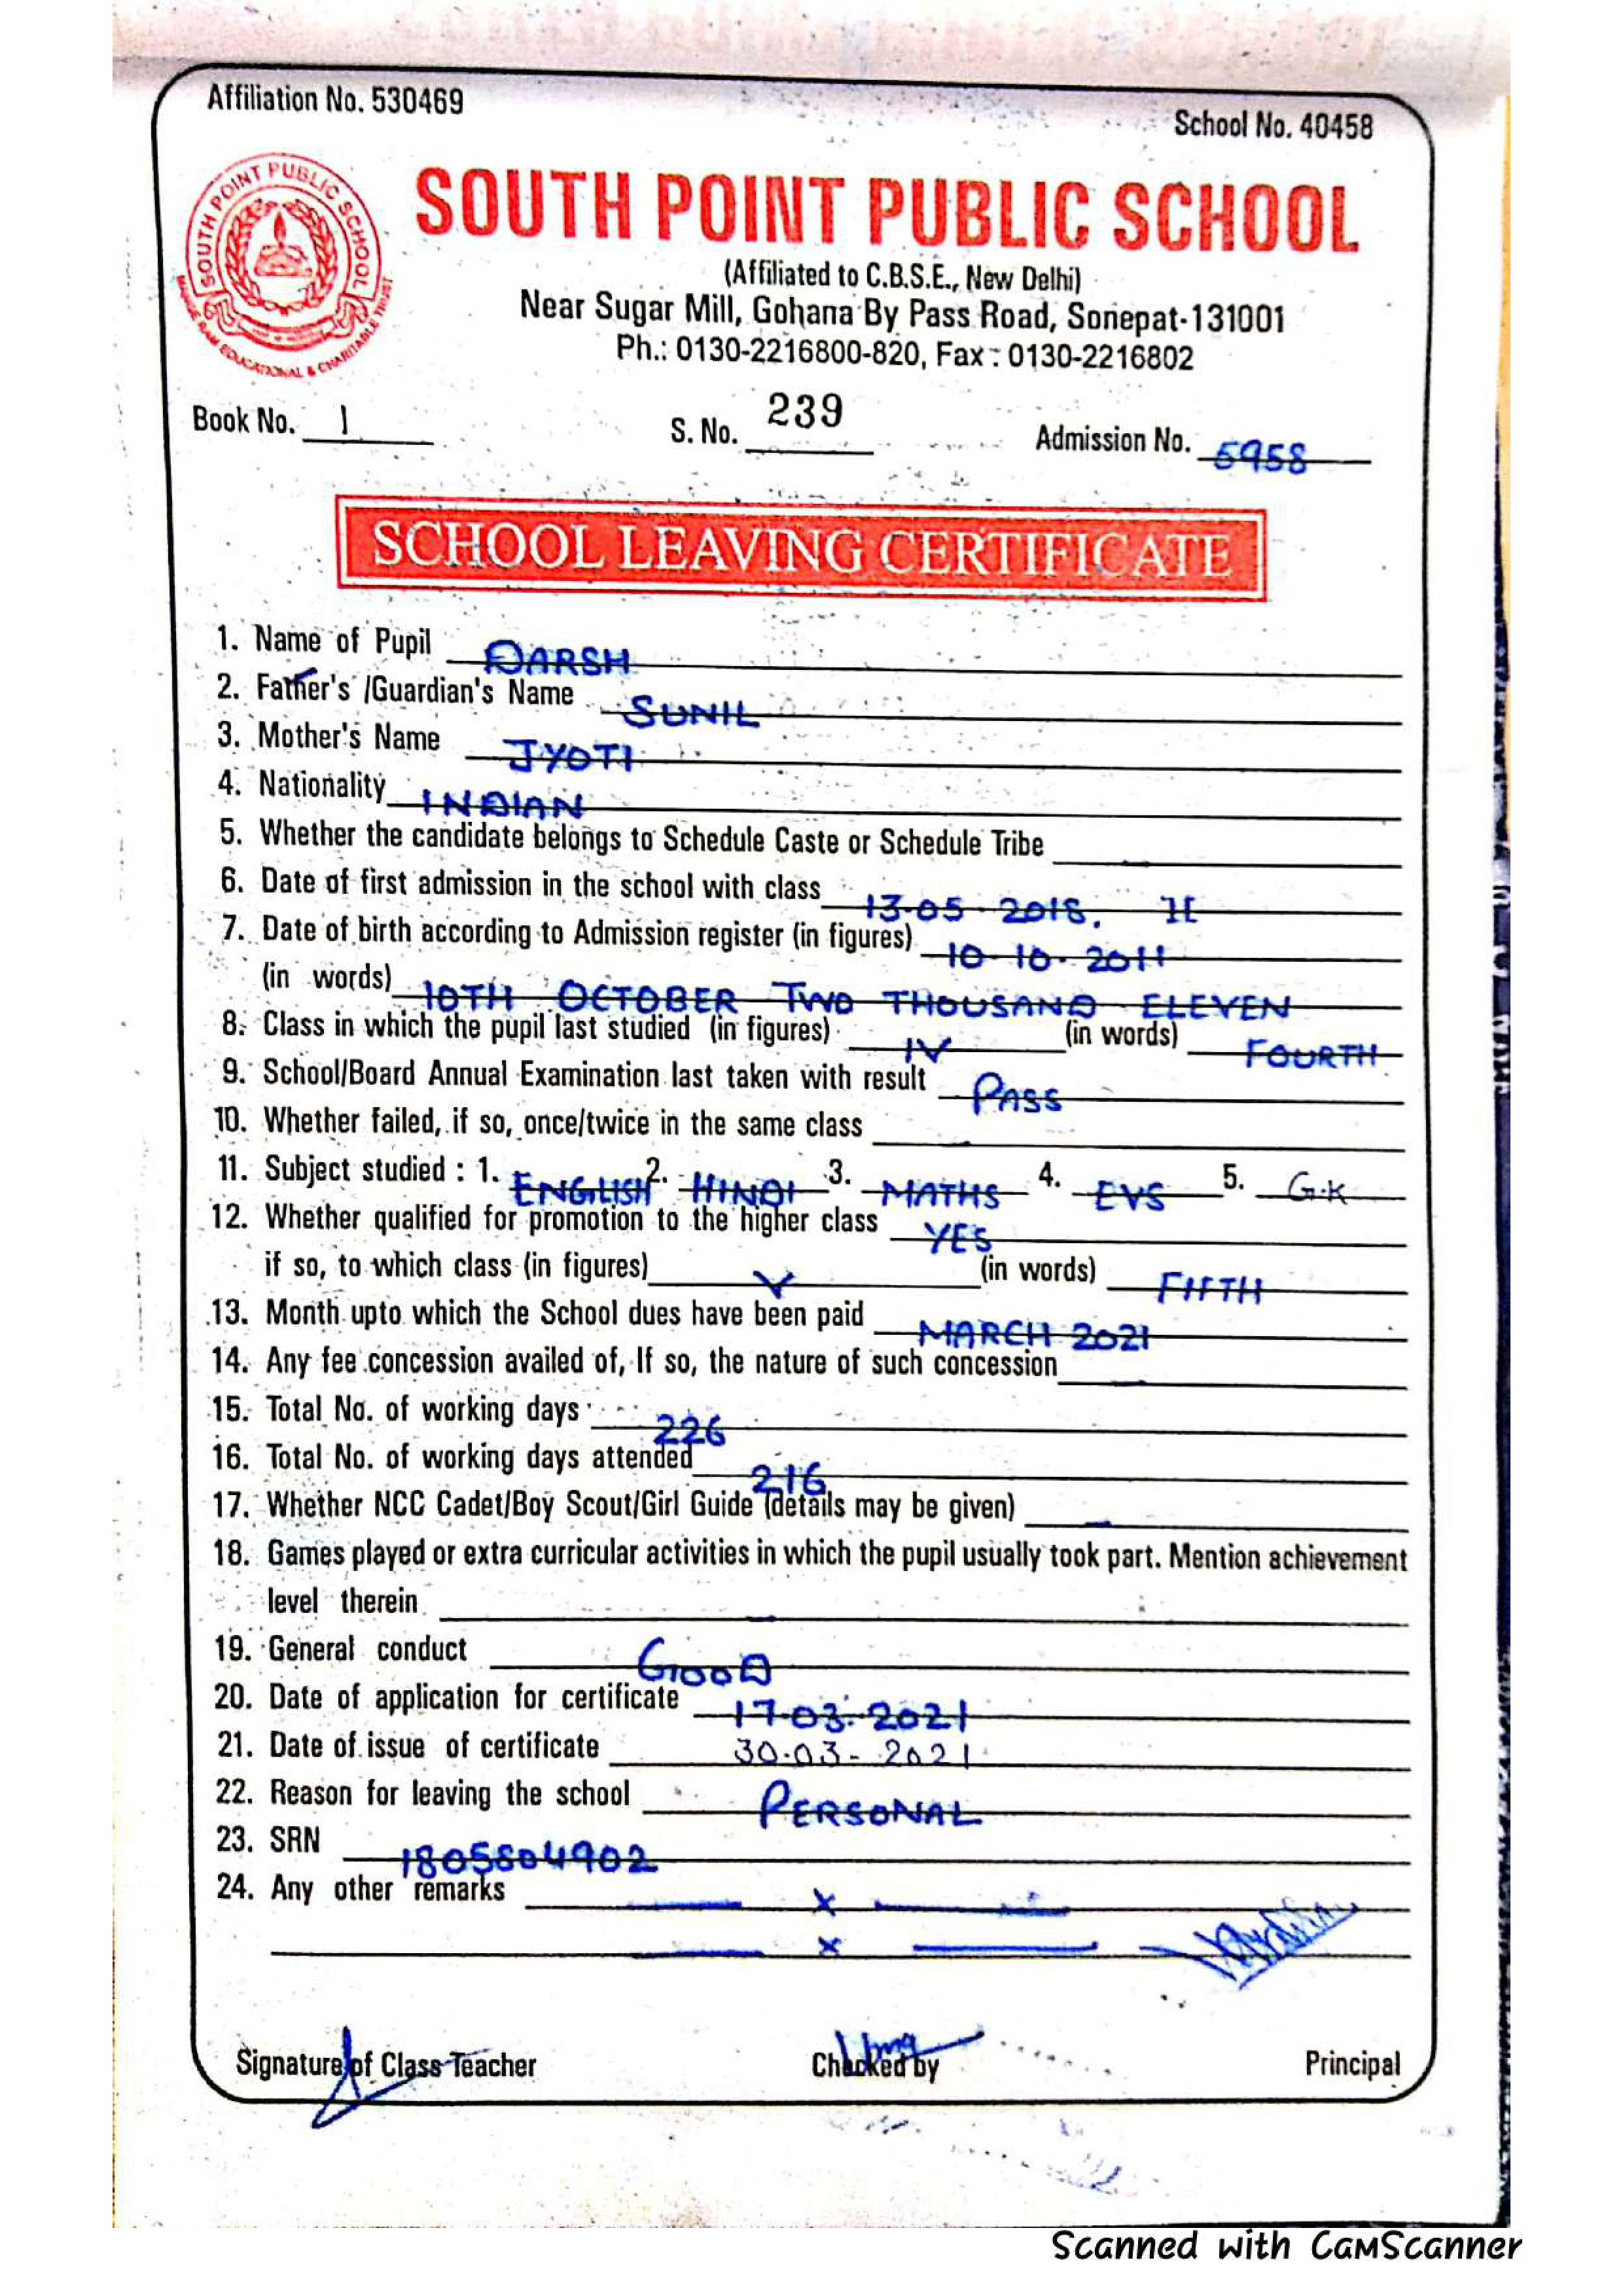 Affiliation No. 530469
School No. 40458
SOUTH POINT PUBLIC SCHOOL
SOUTH POINT PUBLIC SCHOOL
(Affiliated to C.B.S.E., New Delhi)
Near Sugar Mill, Gohana By Pass Road, Sonepat-131001
Ph.: 0130-2216800-820, Fax : 0130-2216802
RAM EDUCATIONAL & CHARITABLE TRUST
Book No. 1 S. No. 239 Admission No. 5958
SCHOOL LEAVING CERTIFICATE
1. Name of Pupil DARSH
2. Father's /Guardian's Name SUNIL
3. Mother's Name JYOTI
4. Nationality INDIAN
5. Whether the candidate belongs to Schedule Caste or Schedule Tribe —
6. Date of first admission in the school with class 13-05-2018. II
7. Date of birth according to Admission register (in figures) 10-10-2011
(in words) 10TH OCTOBER TWO THOUSAND ELEVEN
8. Class in which the pupil last studied (in figures) IV (in words) FOURTH
9. School/Board Annual Examination last taken with result PASS
10. Whether failed, if so, once/twice in the same class —
11. Subject studied : 1. ENGLISH 2. HINDI 3. MATHS 4. EVS 5. G.K
12. Whether qualified for promotion to the higher class YES
if so, to which class (in figures) V (in words) FIFTH
13. Month upto which the School dues have been paid MARCH 2021
14. Any fee concession availed of, If so, the nature of such concession —
15. Total No. of working days 226
16. Total No. of working days attended 216
17. Whether NCC Cadet/Boy Scout/Girl Guide (details may be given) —
18. Games played or extra curricular activities in which the pupil usually took part. Mention achievement
level therein —
19. General conduct GOOD
20. Date of application for certificate 17-03-2021
21. Date of issue of certificate 30-03-2021
22. Reason for leaving the school PERSONAL
23. SRN 1805804902
24. Any other remarks — x —
— x —
Signature of Class Teacher Checked by Principal
Scanned with CamScanner